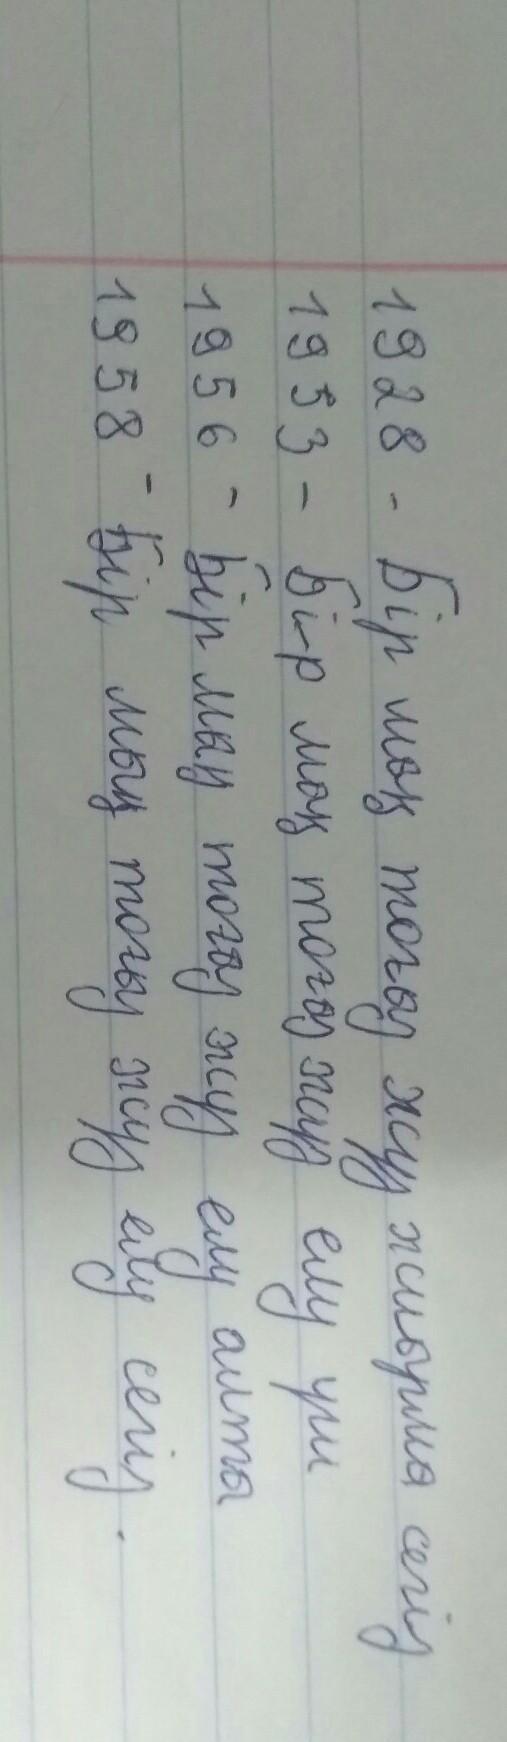 1928 - Бір мың тоғыз жүз жиырма сегіз
1953 - Бір мың тоғыз жүз елу үш
1956 - Бір мың тоғыз жүз елу алты
1958 - Бір мың тоғыз жүз елу сегіз.